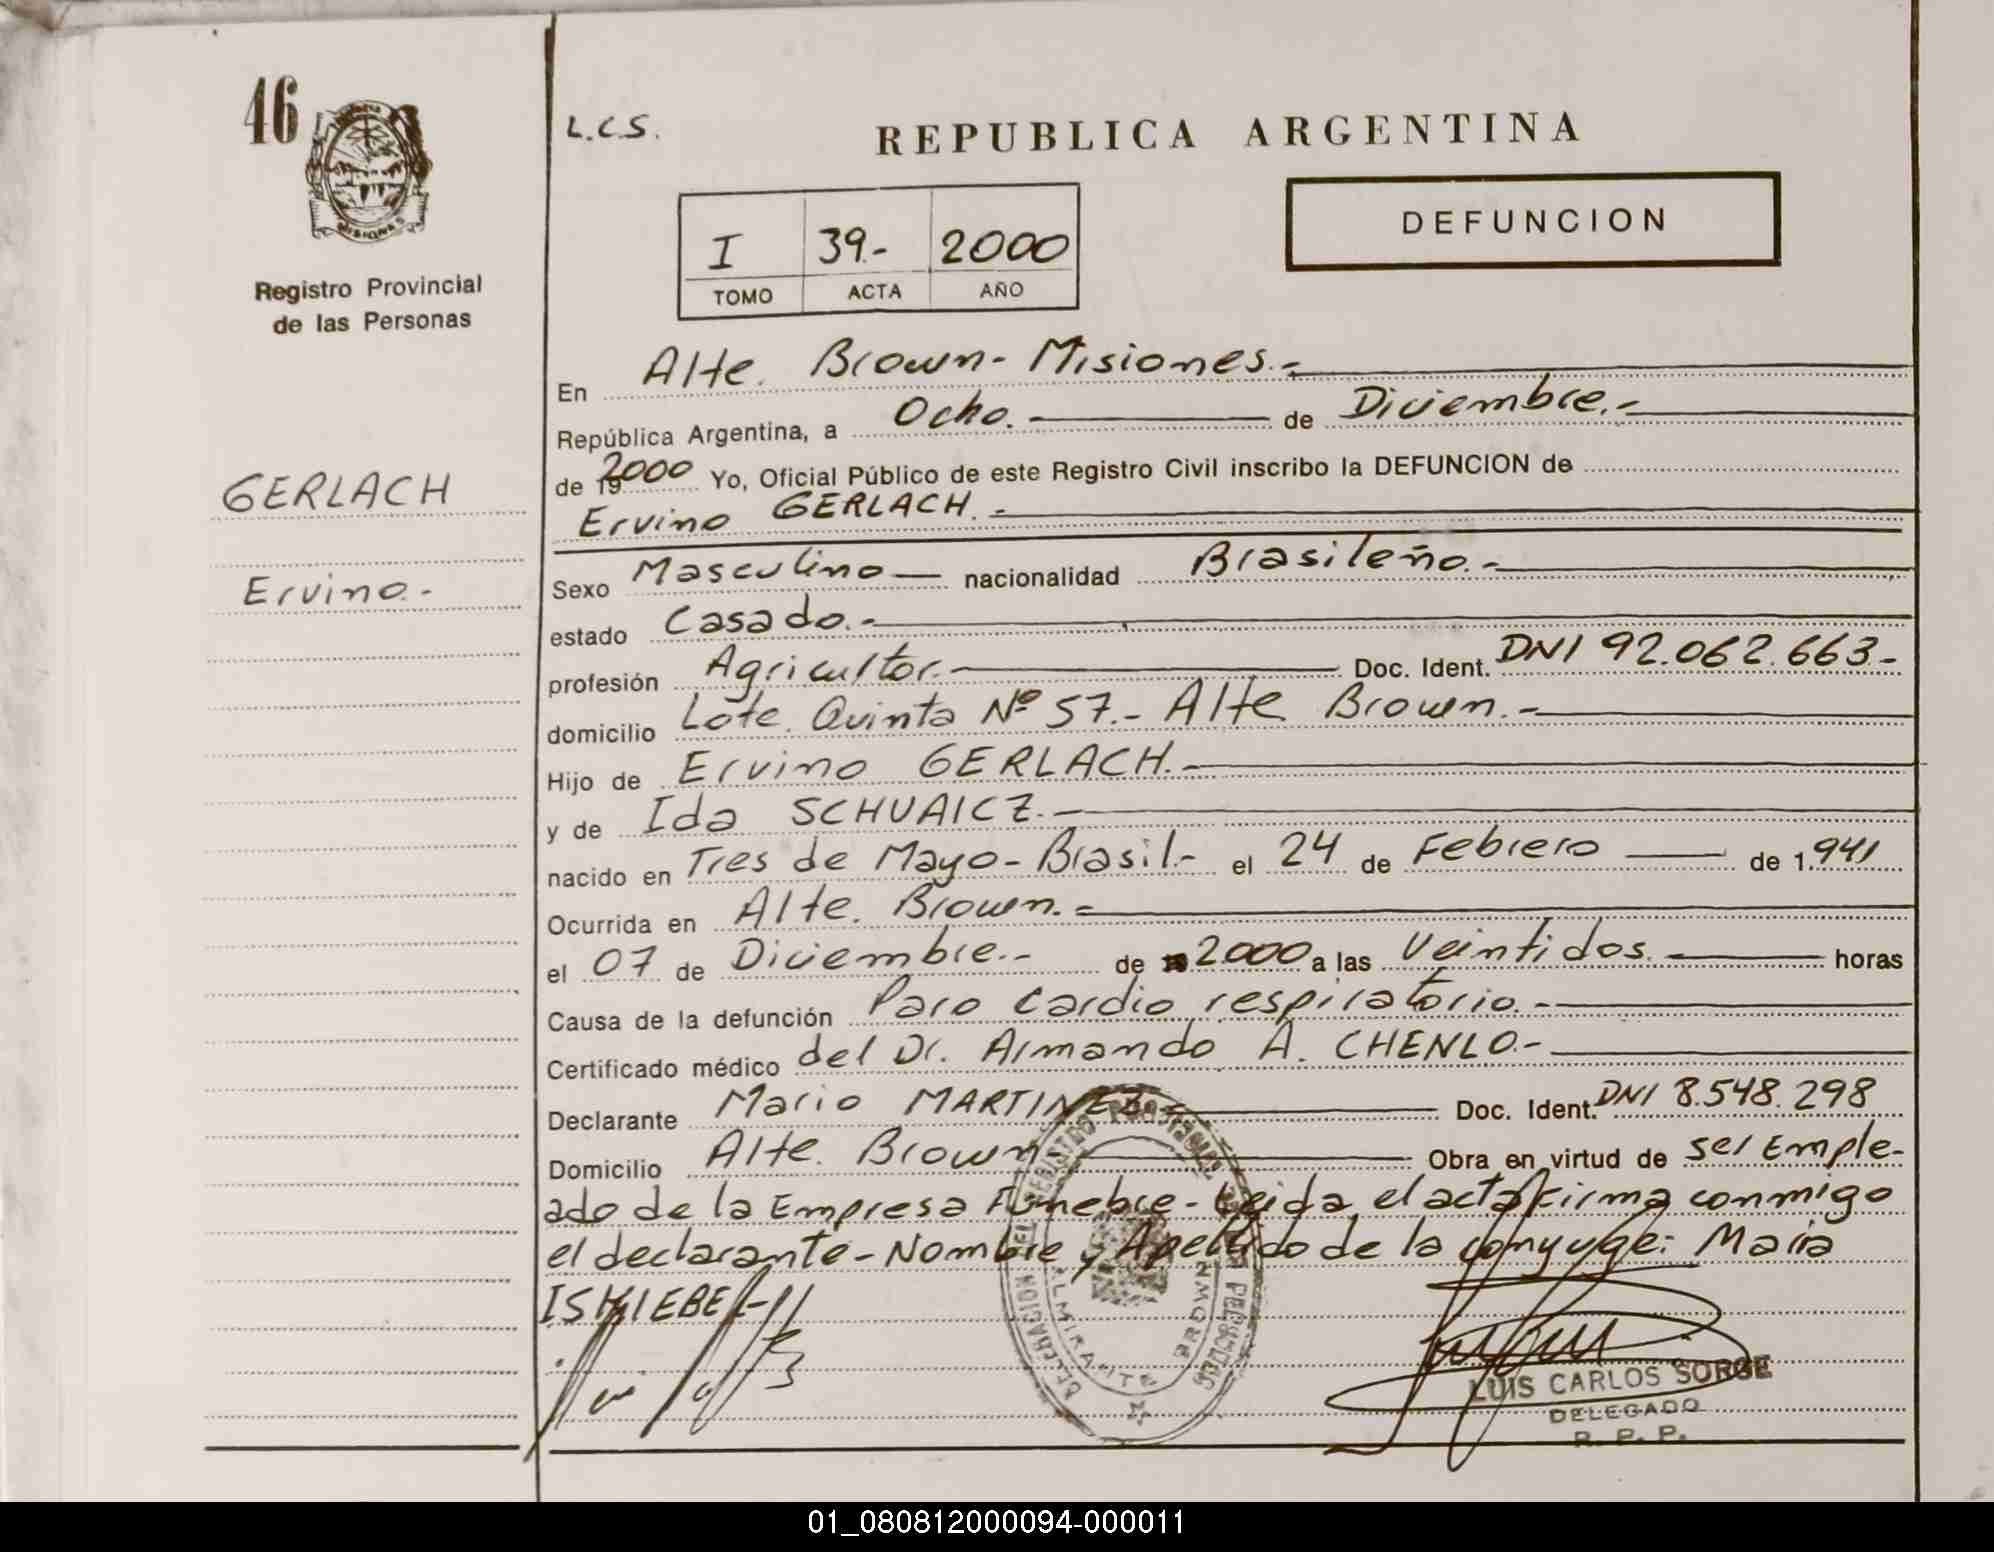 46
MISIONES
Registro Provincial
de las Personas
GERLACH
Ervino.-
L.C.S.
REPUBLICA ARGENTINA
I 39.- 2000
TOMO ACTA AÑO
DEFUNCION
En Alte. Brown - Misiones.-
República Argentina, a Ocho. de Diciembre.-
de 19 2000 Yo, Oficial Público de este Registro Civil inscribo la DEFUNCION de
Ervino GERLACH.-
Sexo Masculino nacionalidad Brasileño.-
estado Casado.-
profesión Agricultor.- Doc. Ident. DNI 92.062.663.-
domicilio Lote Quinta Nº 57.- Alte Brown.-
Hijo de Ervino GERLACH.-
y de Ida SCHUAICZ.-
nacido en Tres de Mayo - Brasil.- el 24 de Febrero de 1.941
Ocurrida en Alte. Brown.-
el 07 de Diciembre.- de 2000 a las Veintidos. horas
Causa de la defunción Paro cardio respiratorio.-
Certificado médico del Dr. Armando A. CHENLO.-
Declarante Mario MARTINEZ.- Doc. Ident. DNI 8.548.298
Domicilio Alte. Brown Obra en virtud de ser Emple-
ado de la Empresa Fúnebre - Leida el acta firma conmigo
el declarante - Nombre y Apellido de la conyuge: Maria
DELEGACION DEL REGISTRO PROVINCIAL DE LAS PERSONAS
ALMIRANTE BROWN
LUIS CARLOS SORGE
DELEGADO
R. P. P.
01_080812000094-000011